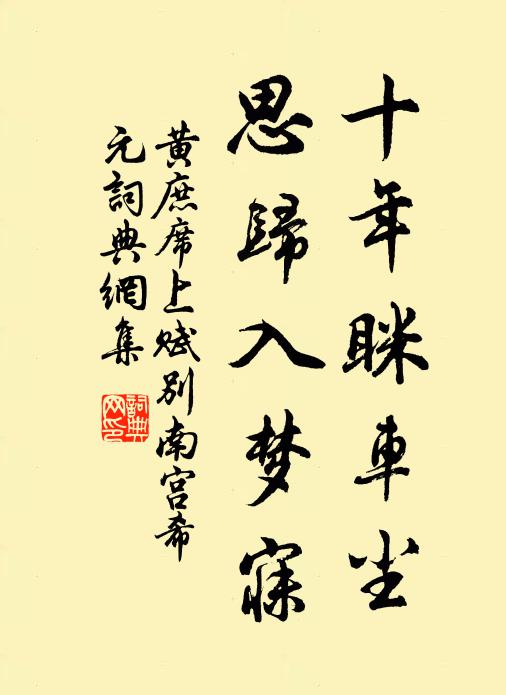 十年眯車尘
思歸入梦寐
黃庶席上赋别南宫希
元詞典網集
詞典网印